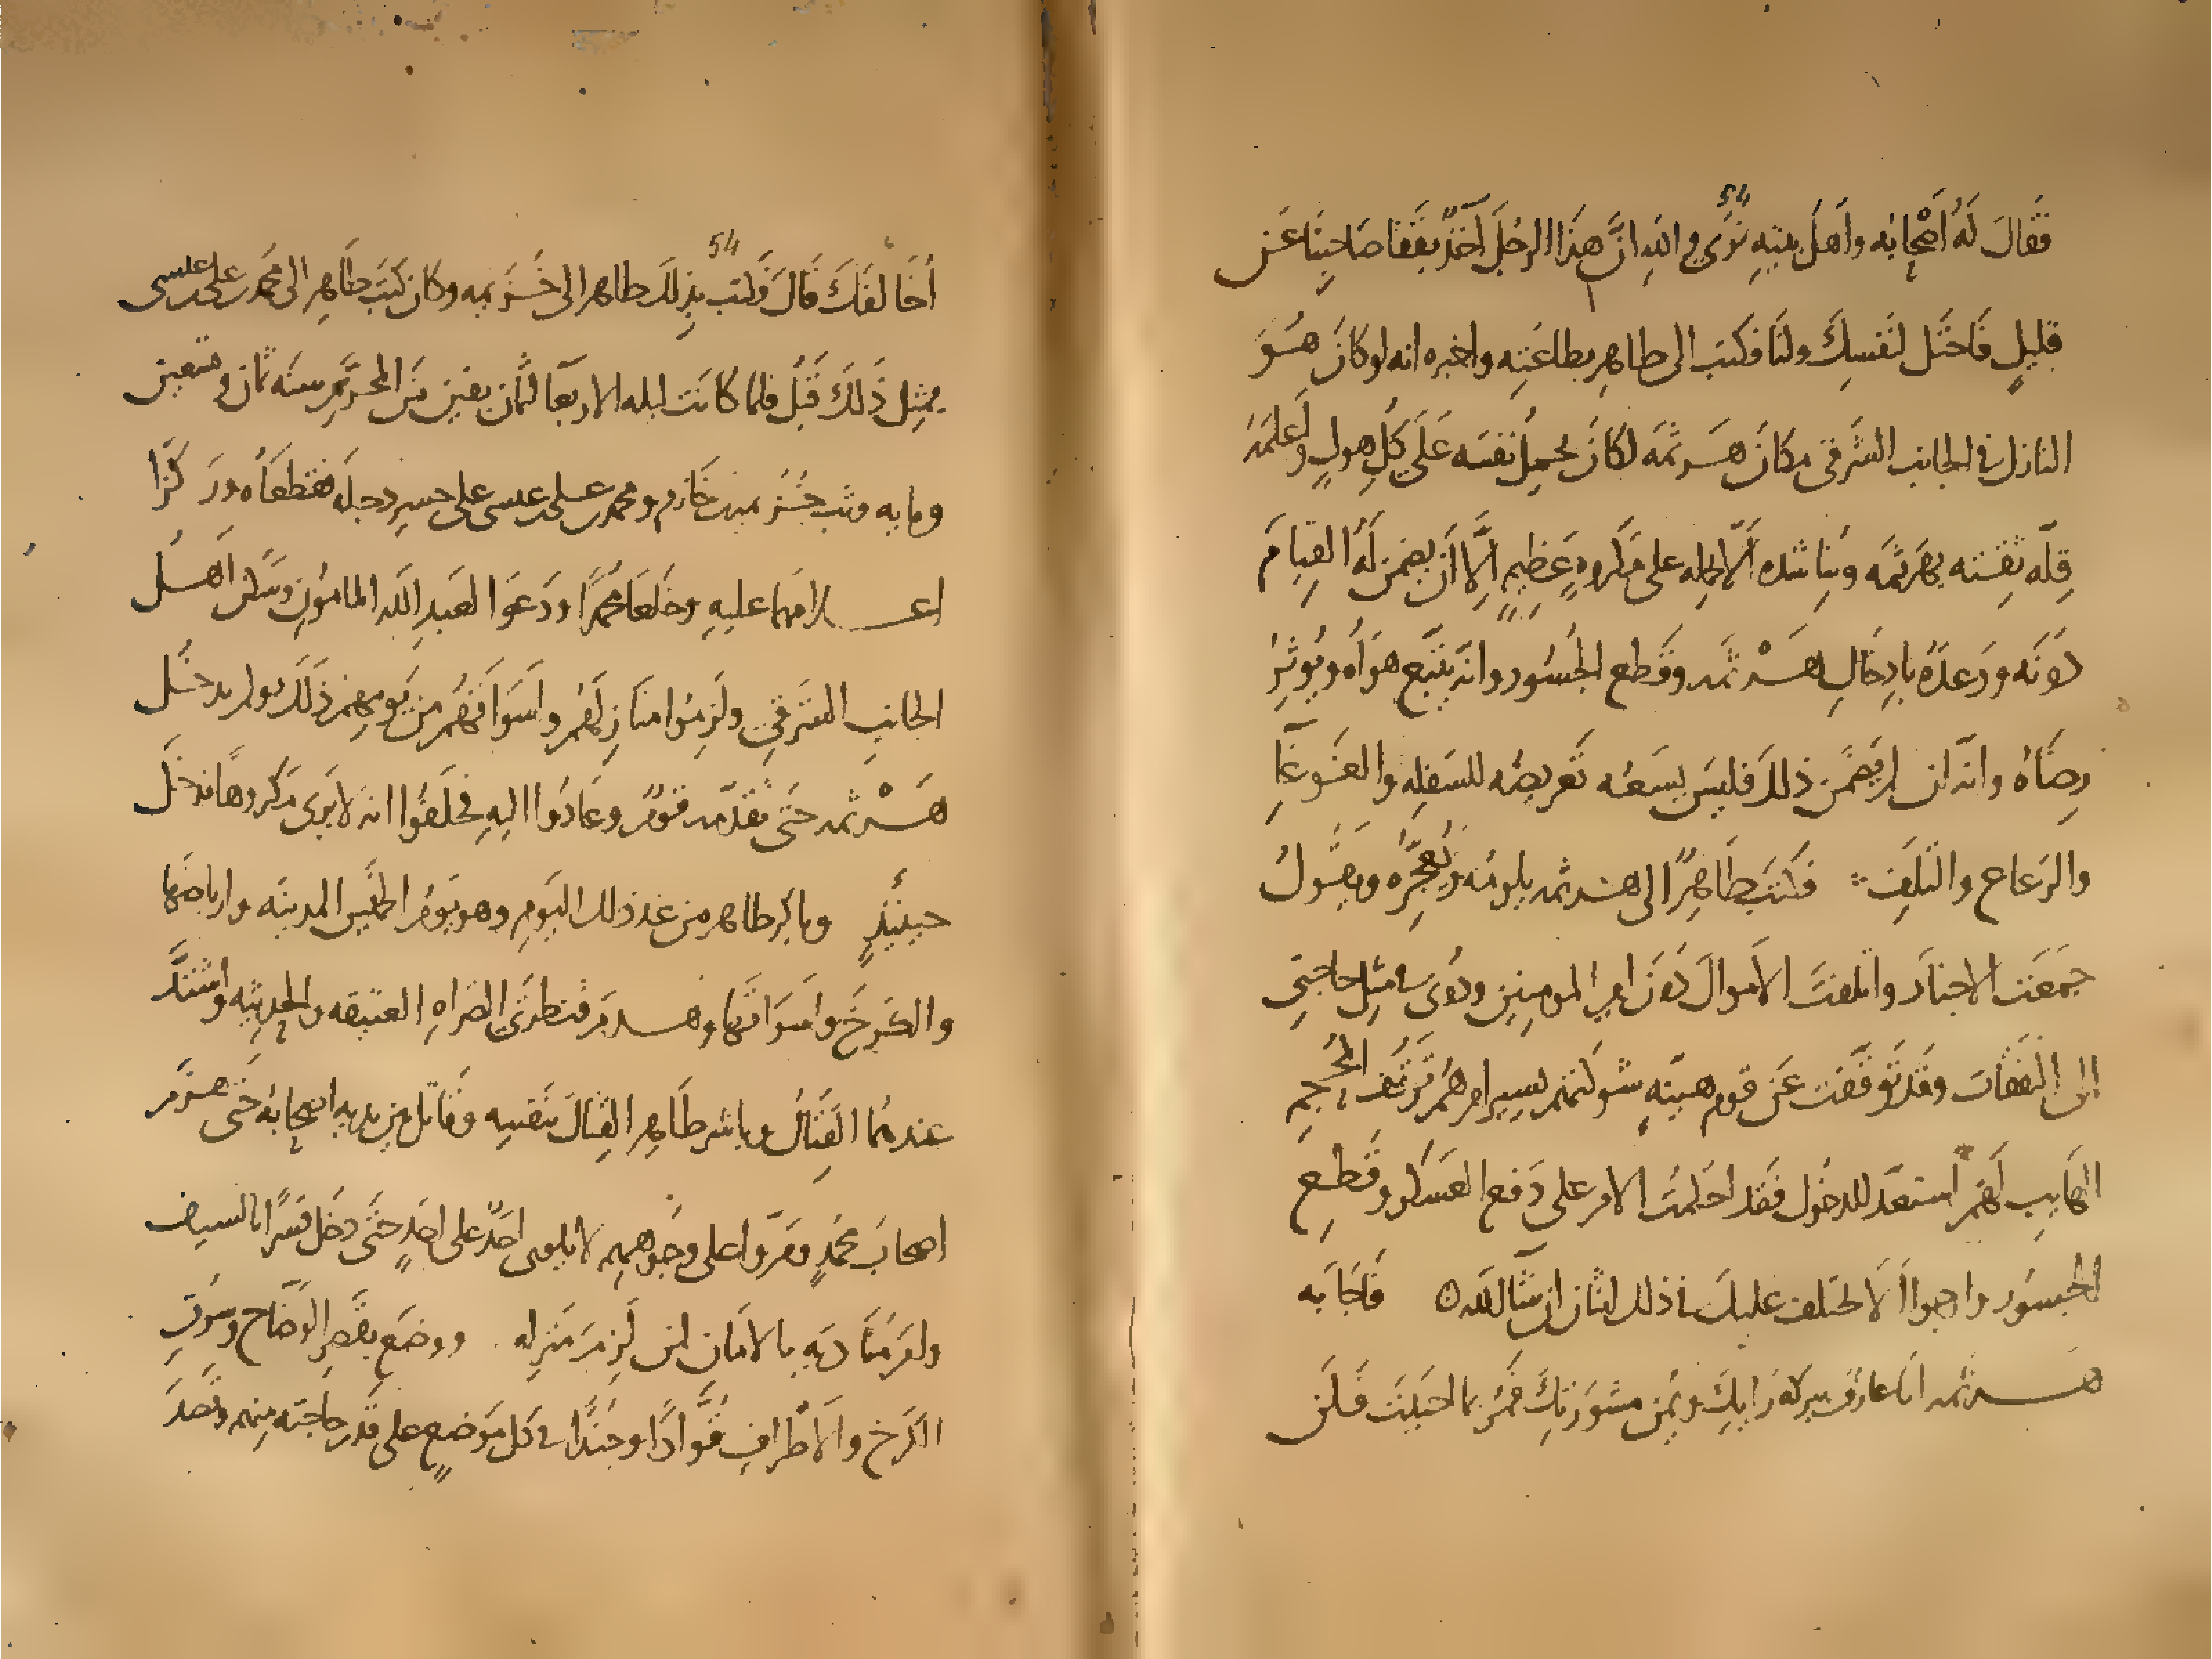 54
فقَالَ لَهُ أَصْحَابُه وأهل بيته نرى والله انَّ هذا الرجل آخذٌ بقفا صَاحبنا عَن
قليلٍ فَاحتَل لنَفسِكَ ولنَا فكتب الى طاهِر بطاعَتِه واخبره انه لو كانَ هُوَ
النازل فى الجانب الشَرقى مكانَ هَرثَمَه لكانَ يحمِلُ نفسَه عَلَى كُلِ هولٍ وأعلمَهُ
قِلّه ثِقَته بهَرثمَه ويناشده ألّا يحمله على مَكروهٍ عَظِيمٍ إلّا أن يضمن لَهُ القيَامَ
دونَه ووَعدَهُ بإدخالِ هَرْثَمه وقطع الجُسُور وانه يتّبع هَوَاه ويُوثِرُ
رضَاهُ وانه ان لم يَضمَن ذلك فليسَ يسَعُه تَعريضُه للسَفِله والغَوغآءِ
والرَعاع والتَلَف فكتبَ طَاهِرٌ الى هرثمه يلومُه ويُعجِّزُه ويقُولُ
جمَعتَ الاجنادَ واتلفتَ الأموالَ دُونَ امير المومِنِين ودُونى فى مِثلِ حاجتِى
الى النفَقات وقد توقَّفت عَن قوم هيّنَهٍ شوكتهم يسيرٍ امرهُم توَقُّفَ المُحجِمِ
الهَايِبِ لهُم استعَدّ للدخُول فَقد احكمتُ الامر على دَفع العَسكَر وقَطعِ
الجُسُور وارجوا ألا يختلف عليكَ فى ذلك اثنان ان شَآ اللّه ه فَاجَابَه
هَرثمه انا عارفٌ ببركه رَايِكَ ويُمن مشوَرَتِكَ فمُر بما احبَبتَ فَلَن
54
أخَالفَكَ قَالَ فَكتب بذلك طاهر الى خُزَيمه وكان كتَب طَاهِر الى محمَّد بن على بن عيسى
بمثِل ذَلكَ قَبل فلما كانَت ليله الاربعآ لثمان بقين مِنَ المحرَّم سنه ثمان وتسعين
ومايه وثب خُزَيمه بن خَازم ومحمد بن على بن عيسى على جسر دجلَه فقطعَاه ورَكزَا
اعلامَهما عليهِ وخلعَا محمَّدًا ودَعَوَا لعَبدِ الله المامُونِ وسَكن أهلُ
الجانبِ الشَرقىِ ولَزِمُوا منَازِلَهُم وأسَوَاقَهُم مِن يَومِهم ذَلكَ ولم يدخُل
هَرْثمه حَتى تقدّمه قومٌ وعَادُوا اليهِ فحلَفُوا انه لا يَرى مَكروهًا فدَخَل
حينَئِذٍ وباكر طاهر من غد ذلك اليَوم وهو يَومُ الخميس المدينَه وارباضَها
والكَرخَ واَسوَاقَها وهدم قنطرتى الصَراهِ العتيقه والحديثه واشتدَّ
عندهُما القِتَالُ وباشر طَاهِر القِتَالَ بنفسِه وقَاتل بين يديه اصحابُه حَتى هزَمَ
اصحابَ محمَّدٍ ومَرّوا على وجُوههِم لا يلوى احَدٌ على احَدٍ حتَى دخَل قسرًا بالسيف
وامر مُنَاديَه بالامَان لمن لَزِمَ مَنزِله ووضعَ بقَصرِ الوَضّاحِ وسُوقِ
الكَرخ والأطرافِ قُوّادًا وجُندًا فى كل مَوضعٍ على قَدر حاجتِه مِنهم وقَصَدَ